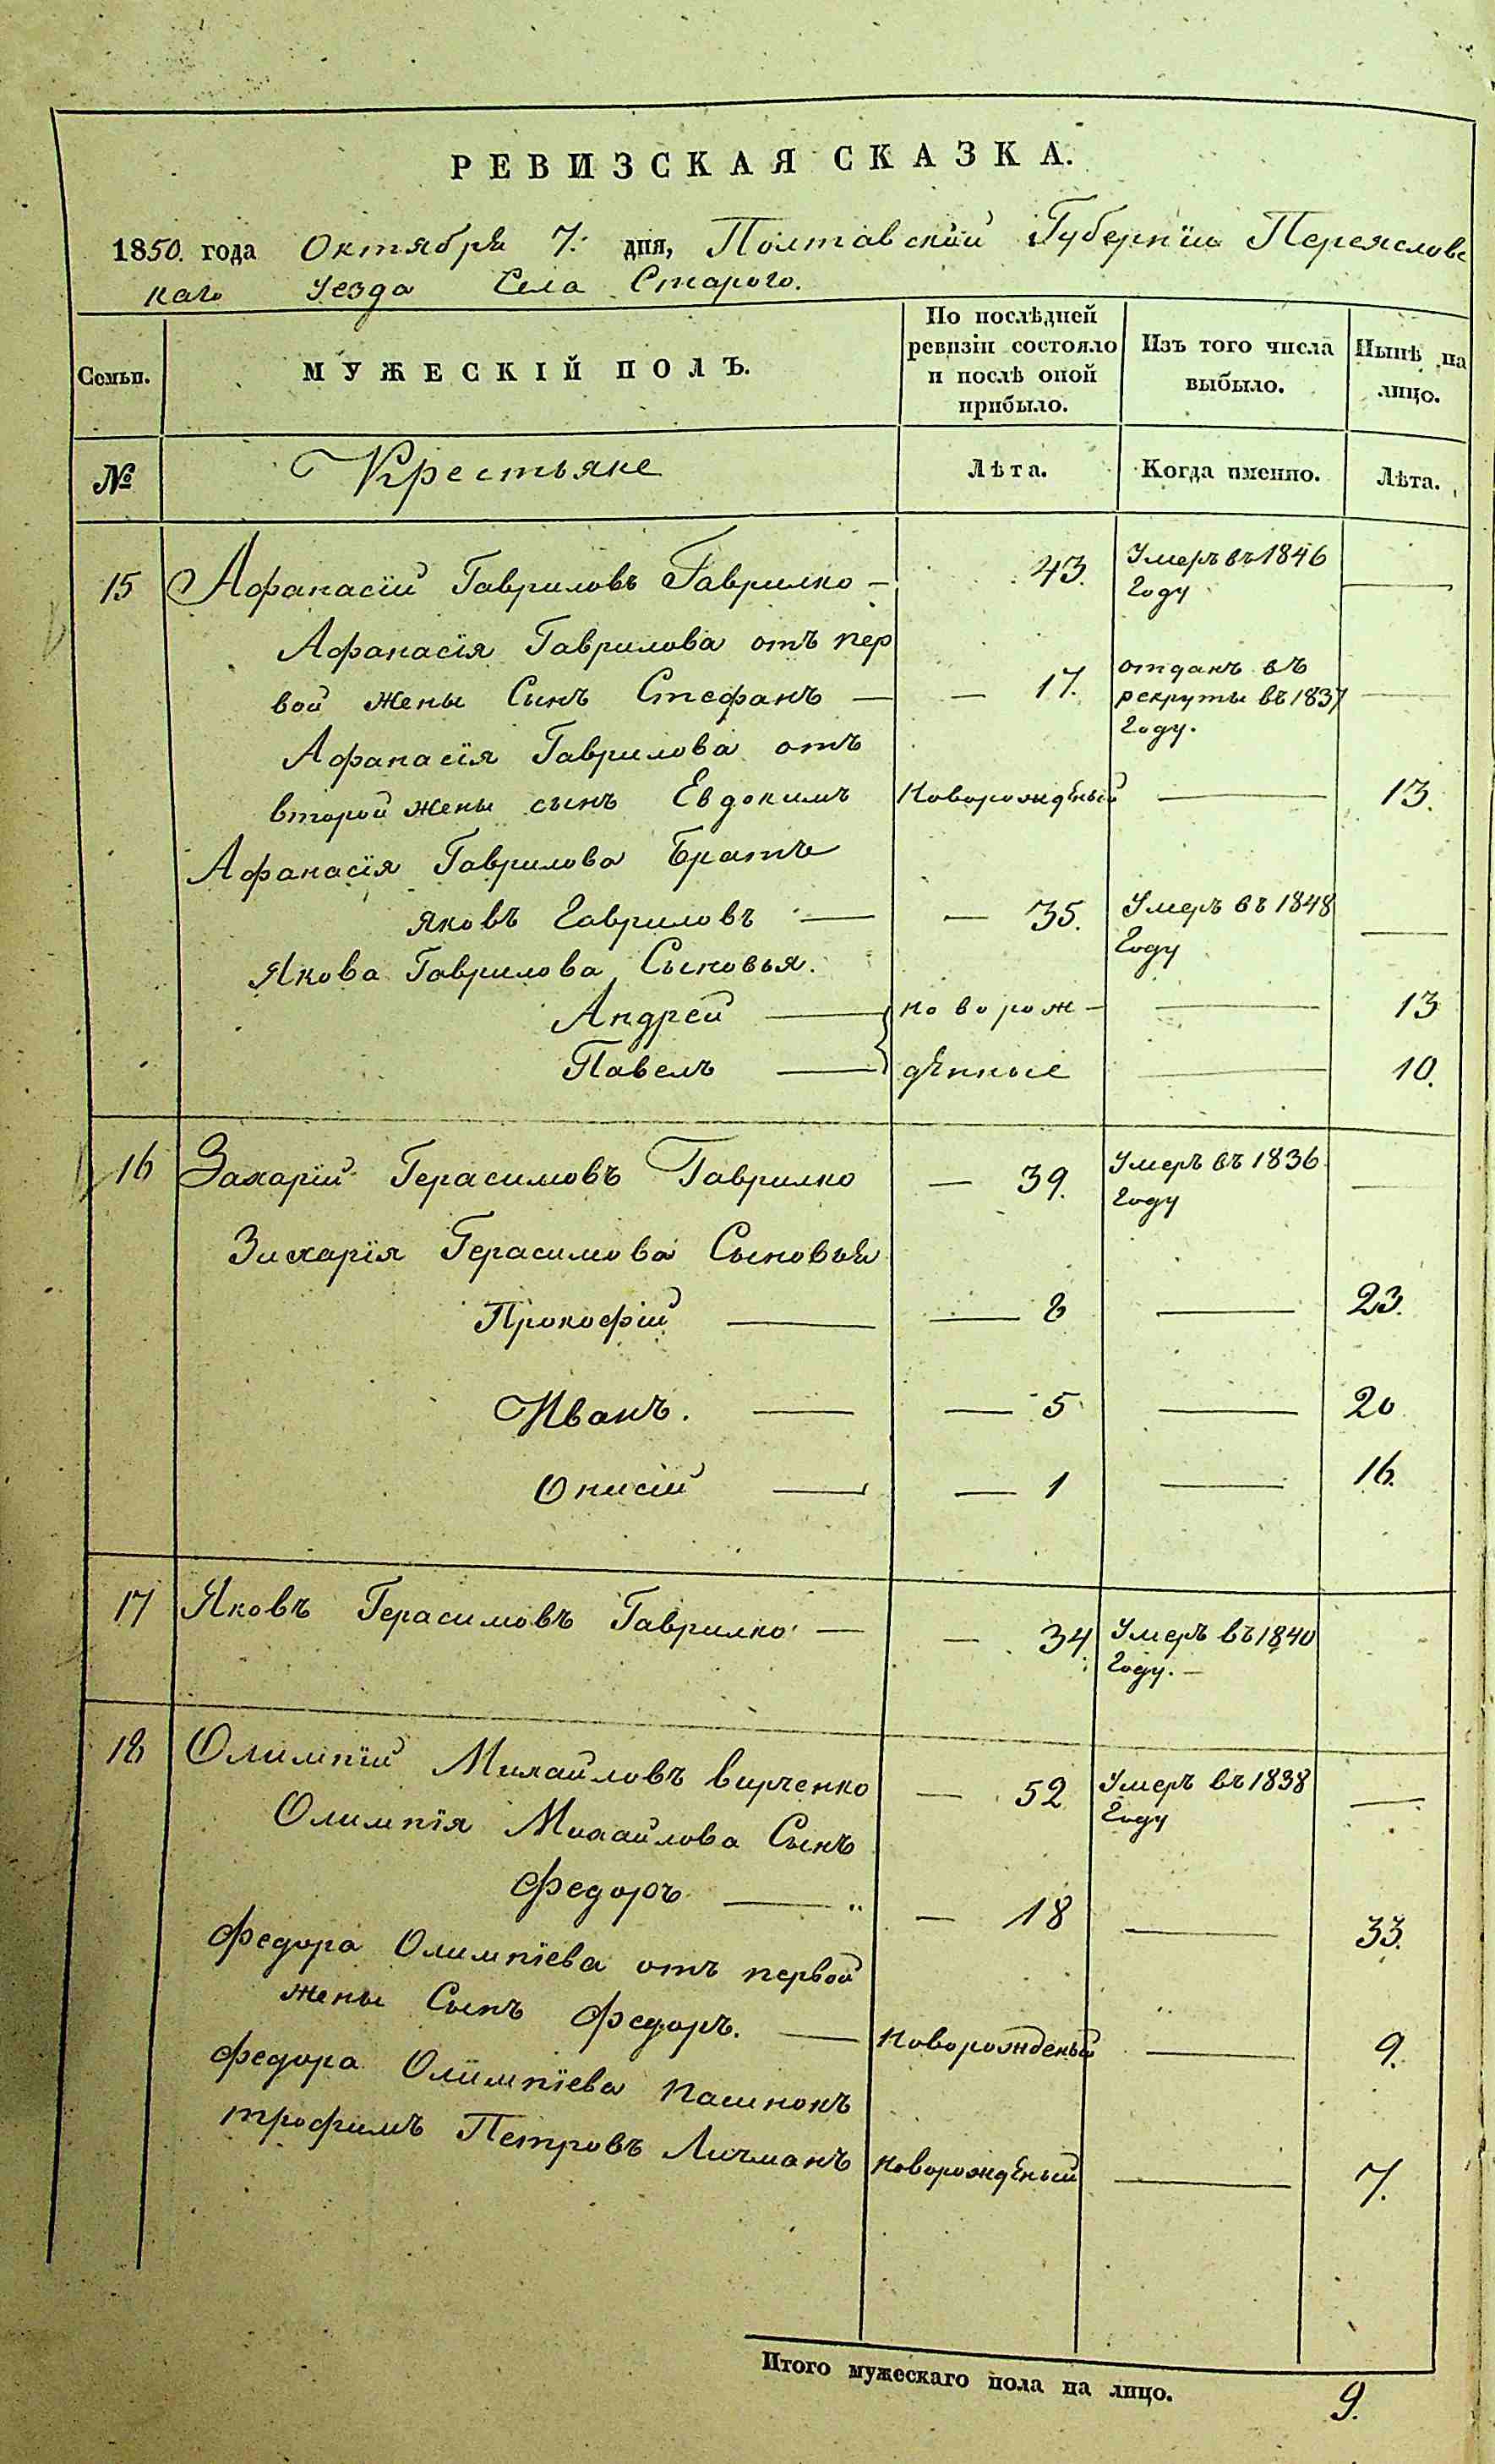 РЕВИЗСКАЯ СКАЗКА.
1850. года Октября 7. дня, Полтавской Губернiи Переяславс
каго уезда Села Старого.
Семьи.
МУЖЕСКІЙ ПОЛЪ.
По послѣдней ревизіи состояло и послѣ оной прибыло.
Изъ того числа выбыло.
Нынѣ на лицо.
№
Крестьяне
Лѣта.
Когда именно.
Лѣта.
15 Афанасiй Гавриловъ Гаврилко — 43. Умеръ въ 1846 —
году
Афанасiя Гаврилова отъ пер
вой жены Сынъ Стефанъ — — 17. отданъ въ —
рекруты въ 1837
году.
Афанасiя Гаврилова отъ
второй жены сынъ Евдокимъ Новорождѣный — 13.
Афанасiя Гаврилова Братъ
яковъ Гавриловъ — — 35. Умеръ въ 1848 —
году
Якова Гаврилова Сыновья.
Андрей — новорож- — 13
Павелъ — дѣнные — 10.
16 Захарiй Герасимовъ Гаврилко — 39. Умеръ въ 1836 —
году
Захарiя Герасимова Сыновья
Прокофiй — — 8 — 23.
Иванъ. — — 5 — 20
Онисiй — — 1 — 16.
17 Яковъ Герасимовъ Гаврилко — — 34 Умеръ въ 1840
году. —
18 Олимпiй Михайловъ вирченко — 52 Умеръ въ 1838 —
году
Олимпiя Михайлова Сынъ
Федоръ — — 18 — 33.
Федора Олимпiева отъ первой
жены Сынъ Федоръ. — Новорожденый — 9.
Федора Олимпiева пасынокъ
трофимъ Петровъ Личманъ новорождѣный — 7.
Итого мужескаго пола на лицо. 9.